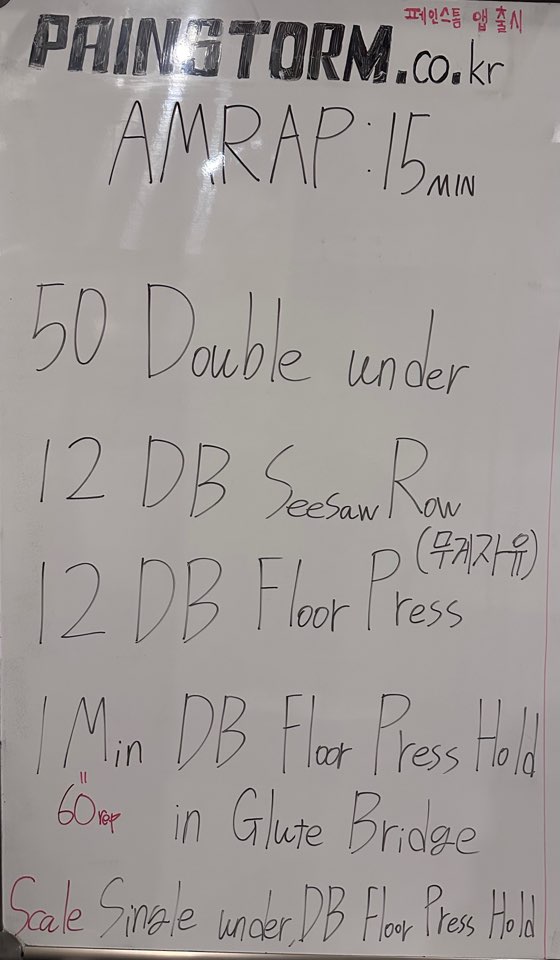 페인스톰 앱 출시
PAINSTORM.co.kr
AMRAP:15MIN
50 Double under
12 DB Seesaw Row
(무게자유)
12 DB Floor Press
1 Min DB Floor Press Hold
"
60rep in Glute Bridge
Scale Single under, DB Floor Press Hold